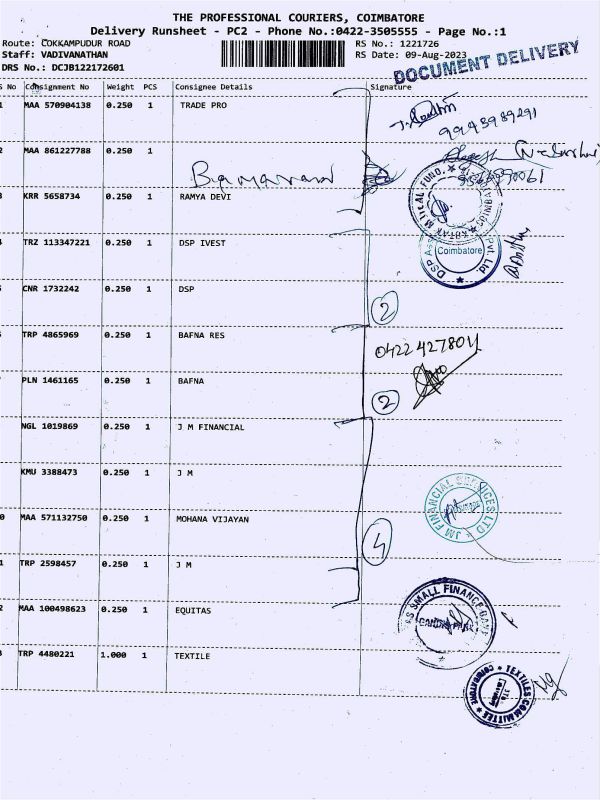 THE PROFESSIONAL COURIERS, COIMBATORE
Delivery Runsheet - PC2 - Phone No.:0422-3505555 - Page No.:1
Route: COKKAMPUDUR ROAD
RS No.: 1221726
Staff: VADIVANATHAN
RS Date: 09-Aug-2023
DRS No.: DCJB122172601
DOCUMENT DELIVERY
S No Consignment No Weight PCS Consignee Details Signature
1 MAA 570904138 0.250 1 TRADE PRO
2 MAA 861227788 0.250 1
3 KRR 5658734 0.250 1 RAMYA DEVI
4 TRZ 113347221 0.250 1 DSP IVEST
Coimbatore
Pvt. Ltd.
CNR 1732242 0.250 1 DSP
2
TRP 4865969 0.250 1 BAFNA RES
0422 427804
PLN 1461165 0.250 1 BAFNA
2
NGL 1019869 0.250 1 J M FINANCIAL
KMU 3388473 0.250 1 J M
JM FINANCIAL SERVICES LTD
0 MAA 571132750 0.250 1 MOHANA VIJAYAN
4
1 TRP 2598457 0.250 1 J M
2 MAA 100498623 0.250 1 EQUITAS
SMALL FINANCE BANK
3 TRP 4480221 1.000 1 TEXTILE
TEXTILES COMMITTEE
COIMBATORE